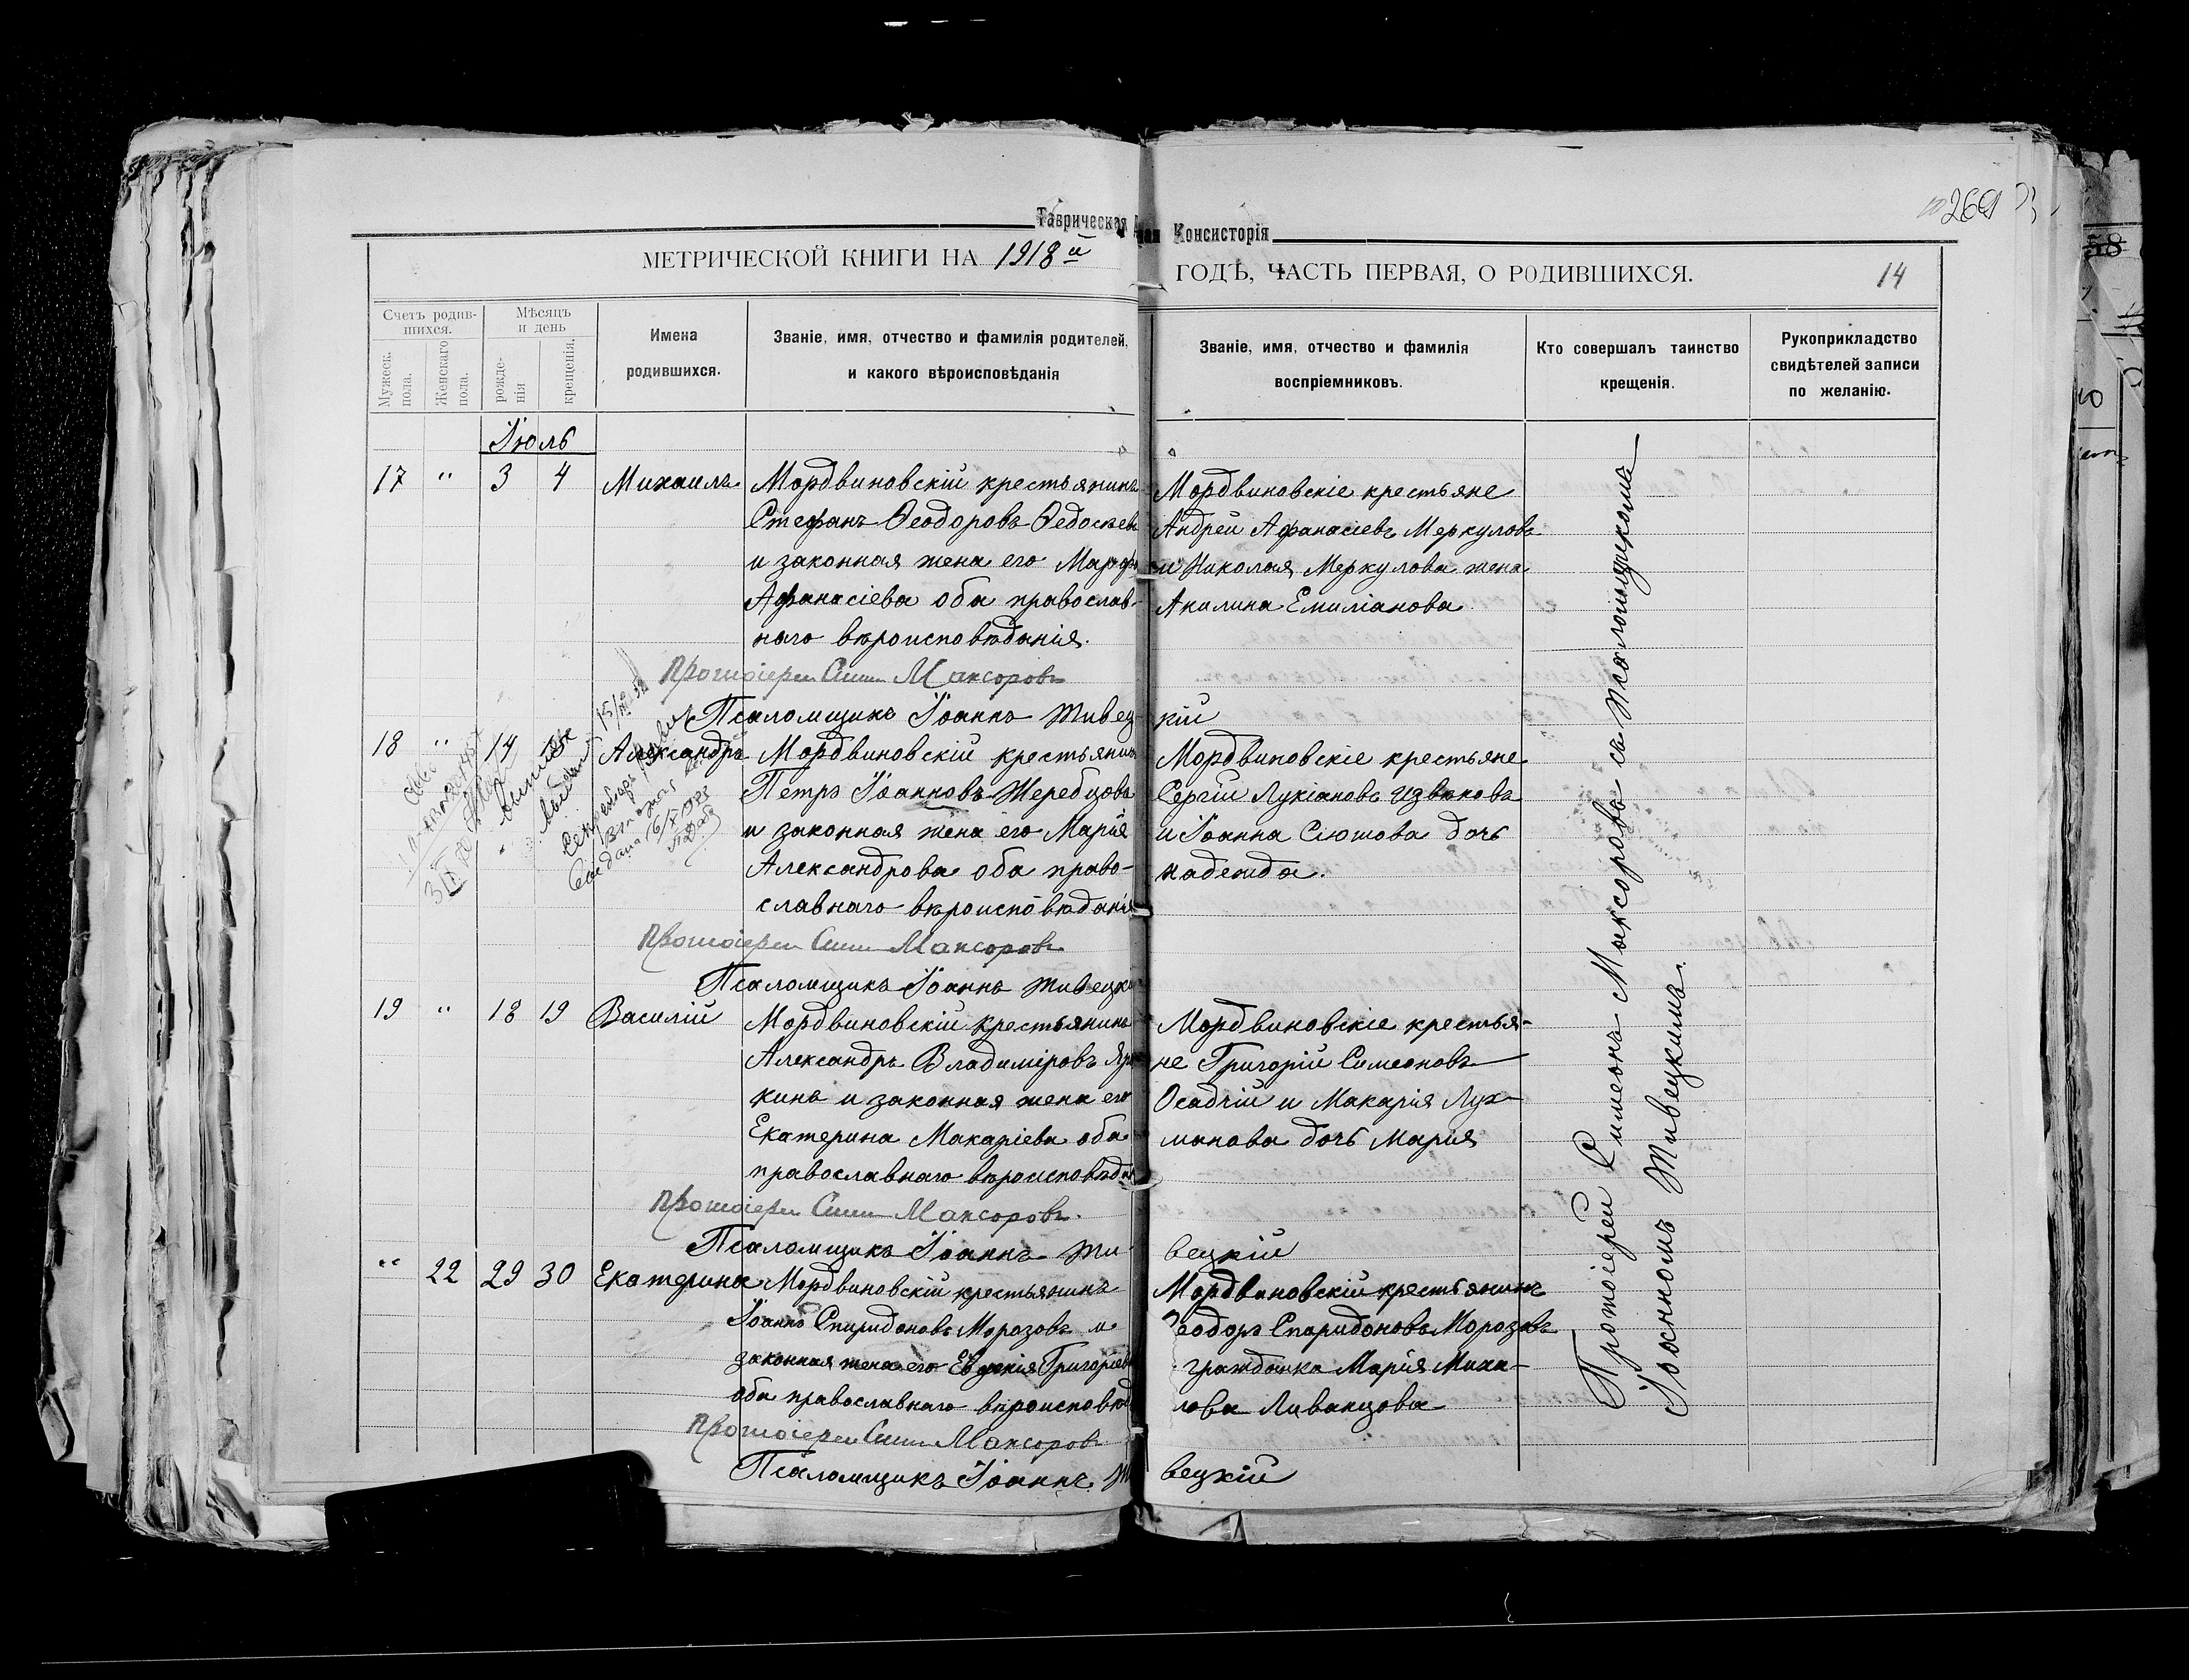 Таврическая
Консисторія
269
МЕТРИЧЕСКОЙ КНИГИ НА 1918й
ГОДЪ, ЧАСТЬ ПЕРВАЯ, О РОДИВШИХСЯ.
14
Счетъ родив-
шихся.
Мужеск.
пола.
Женскаго
пола.
Мѣсяцъ
и день
рожде-
нія
крещенія.
Имена
родившихся.
Званіе, имя, отчество и фамилія родителей,
и какого вѣроисповѣданія
Званіе, имя, отчество и фамилія
воспріемниковъ.
Кто совершалъ таинство
крещенія.
Рукоприкладство
свидѣтелей записи
по желанію.
Іюль
17 " 3 4 Михаилъ
Мордвиновскій крестьянинъ
Стефанъ Ѳеодоровъ Ѳедосѣевъ
и законная жена его Марфа
Афанасіева оба православ-
наго вѣроисповѣданія.
Протоіерей Сим Максоровъ
Псаломщикъ Іоаннъ Живец-
кій
Мордвиновскіе крестьяне
Андрей Афанасіевъ Меркуловъ
и Николая Меркулова жена
Акилина Емиліанова
18 " 14 15 Александръ
Мордвиновскій крестьянинъ
Петръ Іоанновъ Жеребцовъ
и законная жена его Марія
Александрова оба право-
славнаго вѣроисповѣданія
Протоіерей Сим Максоровъ
Псаломщикъ Іоаннъ Живецк
Мордвиновскіе крестьяне
Сергій Лукіановъ Извѣковъ
и Іоанна Сютова дочь
Надежда.
19 " 18 19 Василій
Мордвиновскій крестьянинъ
Александръ Владиміровъ Яр
кинъ и законная жена его
Екатерина Макаріева оба
православнаго вѣроисповѣдан
Протоіерей Сим Максоровъ.
Псаломщикъ Іоаннъ Жи-
вецкій
Мордвиновскіе крестья-
не Григорій Симеоновъ
Осадчій и Макарія Лух-
манова дочь Марія
" 22 29 30 Екатерина
Мордвиновскій крестьянинъ
Іоаннъ Спиридоновъ Морозовъ и
законная жена его Евгенія Григоріев
оба православнаго вѣроисповѣд
Протоіерей Сим Максоровъ
Псаломщикъ Іоаннъ Ж
вецкій
Мордвиновскій крестьянинъ
Ѳеодоръ Спиридоновъ Морозовъ
гражданка Марія Миха-
лова Ливанцова
Протоіерей Симеонъ Максоровъ съ псаломщикомъ
Іоанномъ Живецкимъ.